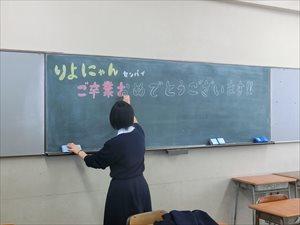 りよにゃん センパイ
ご卒業おめでとうございます!!